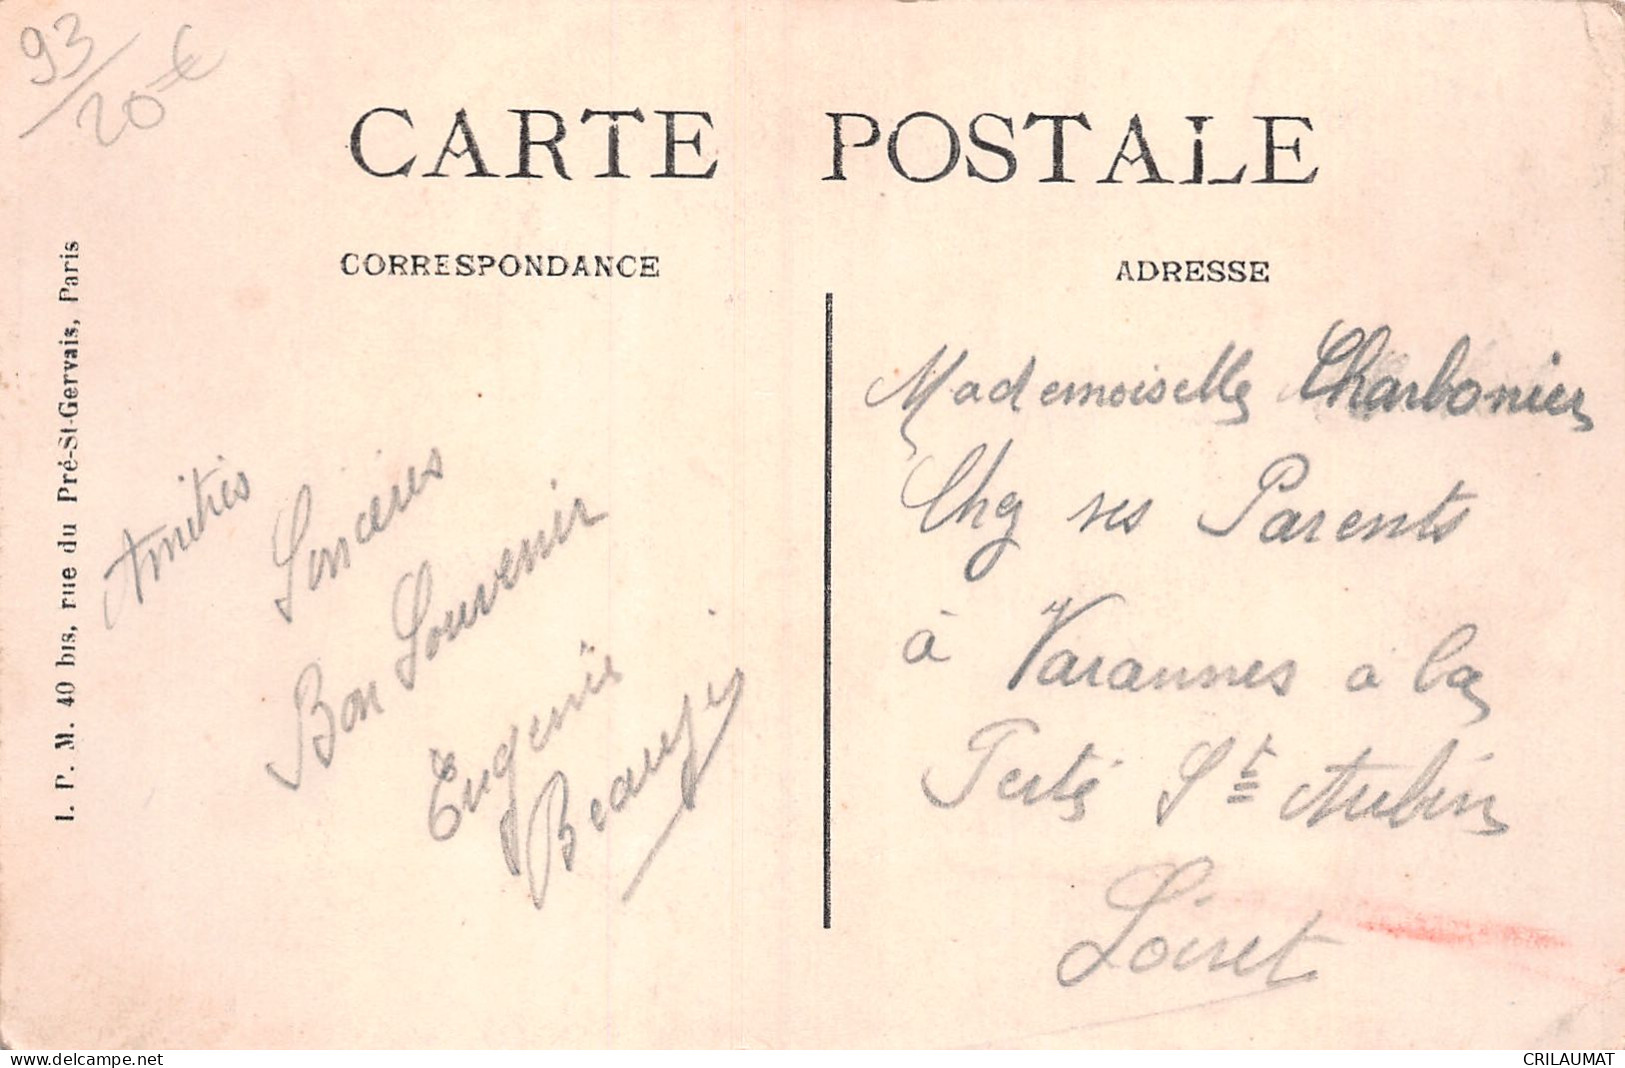 93/20€
CARTE POSTALE
CORRESPONDANCE
ADRESSE
I. P. M. 40 bis, rue du Pré-St-Gervais, Paris
Amitiés Sincères
Bon Souvenir
Eugenie
Mademoiselle Charbonier
Chez ses Parents
à Varannes a la
Ferté St Aubin
Loiret
www.delcampe.net
CRILAUMAT